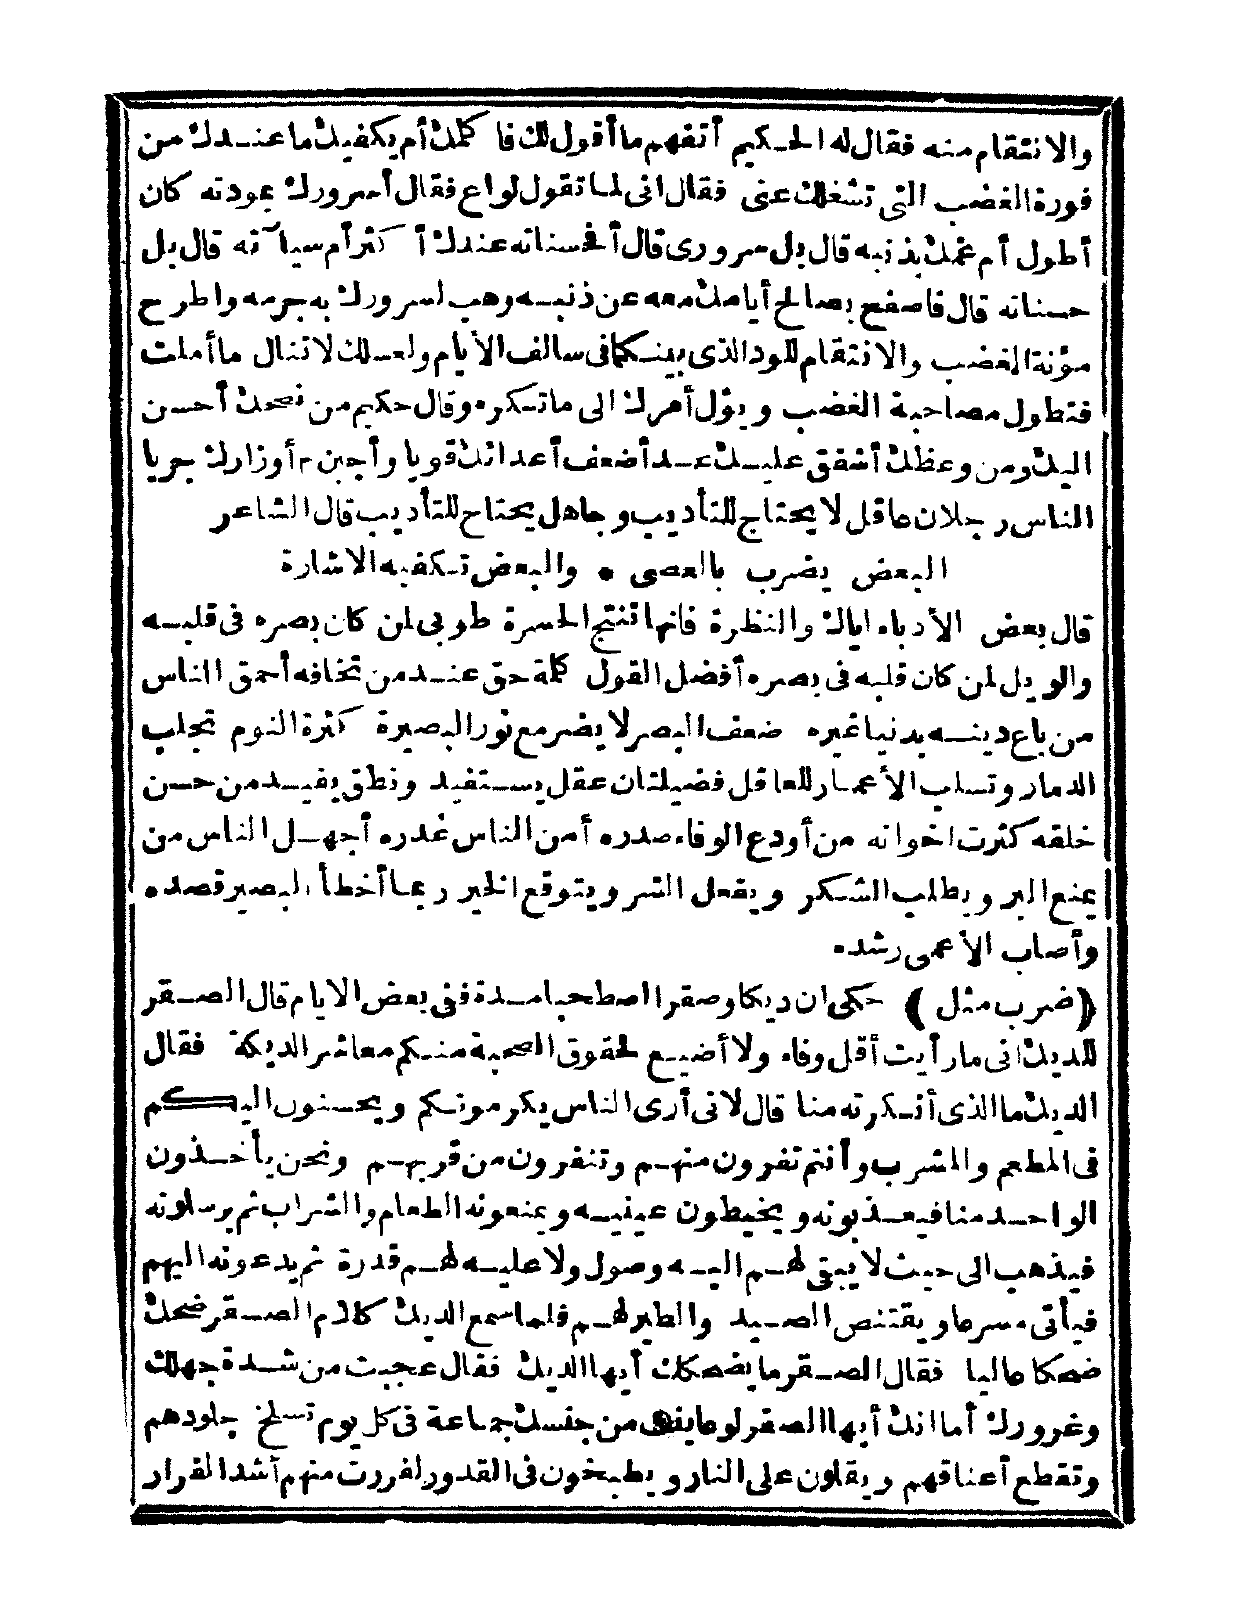 والانتقام منه فقال له الحكيم أتفهم ما أقول لك فا كلمك أم يكفيك ما عندك من
فورة الغضب التى تشغلك عنى فقال انى لما تقول لواع فقال أسرورك بمودته كان
أطول أم غمك بذنبه قال بل سرورى قال أفحسناته عندك أكثر أم سياآته قال بل
حسناته قال فاصفح بصالح أيامك معه عن ذنبه وهب لسرورك به جرمه واطرح
مؤنة الغضب والانتقام للود الذى بينكما فى سالف الأيام ولعلك لا تنال ما أملت
فتطول مصاحبة الغضب ويؤل أمرك الى ما تكره وقال حكيم من نصحك أحسن
اليك ومن وعظك أشفق عليك عد أضعف أعدائك قويا وأجبن أوزارك جريا
الناس رجلان عاقل لا يحتاج للتأديب وجاهل يحتاج للتأديب قال الشاعر
البعض يضرب بالعصى • والبعض تكفيه الاشارة
قال بعض الأدباء اياك والنظرة فانها تنتج الحسرة طوبى لمن كان بصره فى قلبه
والويل لمن كان قلبه فى بصره أفضل القول كلمة حق عند من تخافه أحمق الناس
من باع دينه بدنيا غيره ضعف البصر لا يضر مع نور البصيرة كثرة النوم تجلب
الدمار وتسلب الأعمار للعاقل فضيلتان عقل يستفيد ونطق يفيد من حسن
خلقه كثرت اخوانه من أودع الوفاء صدره أمن الناس غدره أجهل الناس من
يمنع البر ويطلب الشكر ويفعل الشر ويتوقع الخير ربما أخطأ البصير قصده
وأصاب الأعمى رشده
(ضرب مثل) حكى ان ديكا وصقرا اصطحبا مدة ففى بعض الايام قال الصقر
للديك انى ما رأيت أقل وفاء ولا أضيع لحقوق الصحبة منكم معاشر الديكة فقال
الديك ما الذى أنكرته منا قال لانى أرى الناس يكرمونكم ويحسنون اليكم
فى المطعم والمشرب وأنتم تفرون منهم وتنفرون من قربهم ونحن يأخذون
الواحد منا فيعذبونه ويخيطون عينيه ويمنعونه الطعام والشراب ثم يرسلونه
فيذهب الى حيث لا يبقى لهم اليه وصول ولا عليه لهم قدرة ثم يدعونه اليهم
فيأتى مسرعا ويقتنص الصيد والطير لهم فلما سمع الديك كلام الصقر ضحك
ضحكا عاليا فقال الصقر ما يضحكك أيها الديك فقال عجبت من شدة جهلك
وغرورك أما انك أيها الصقر لو من جنسك جماعة فى كل يوم تسلخ جلودهم
وتقطع أعناقهم ويقلون على النار ويطبخون فى القدور لفررت منهم أشد الفرار